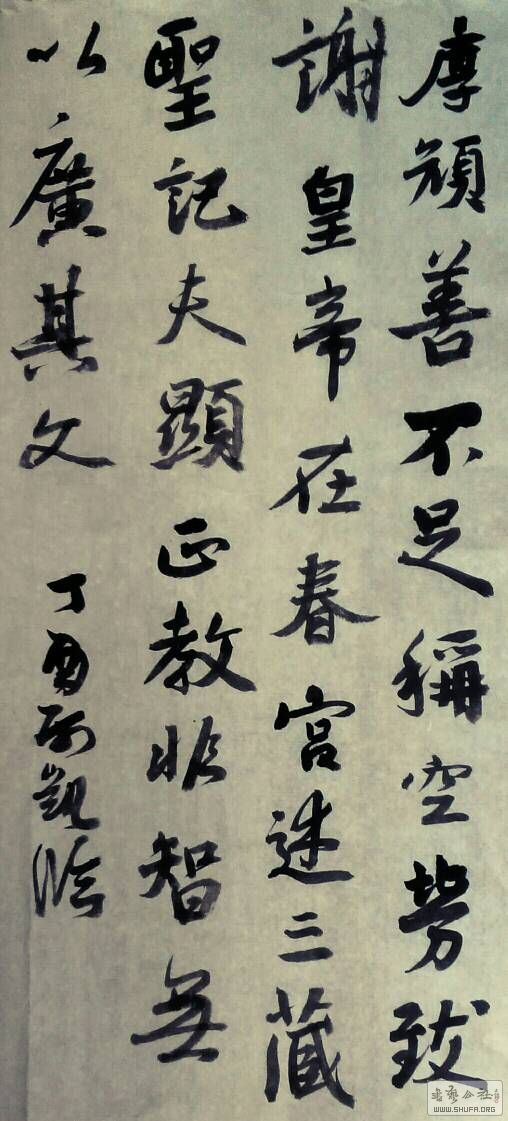 厚顏善不足稱空勞致
謝皇帝在春宮述三藏
聖記夫顯正教非智無
以廣其文
丁酉凱臨
WWW.SHUFA.ORG